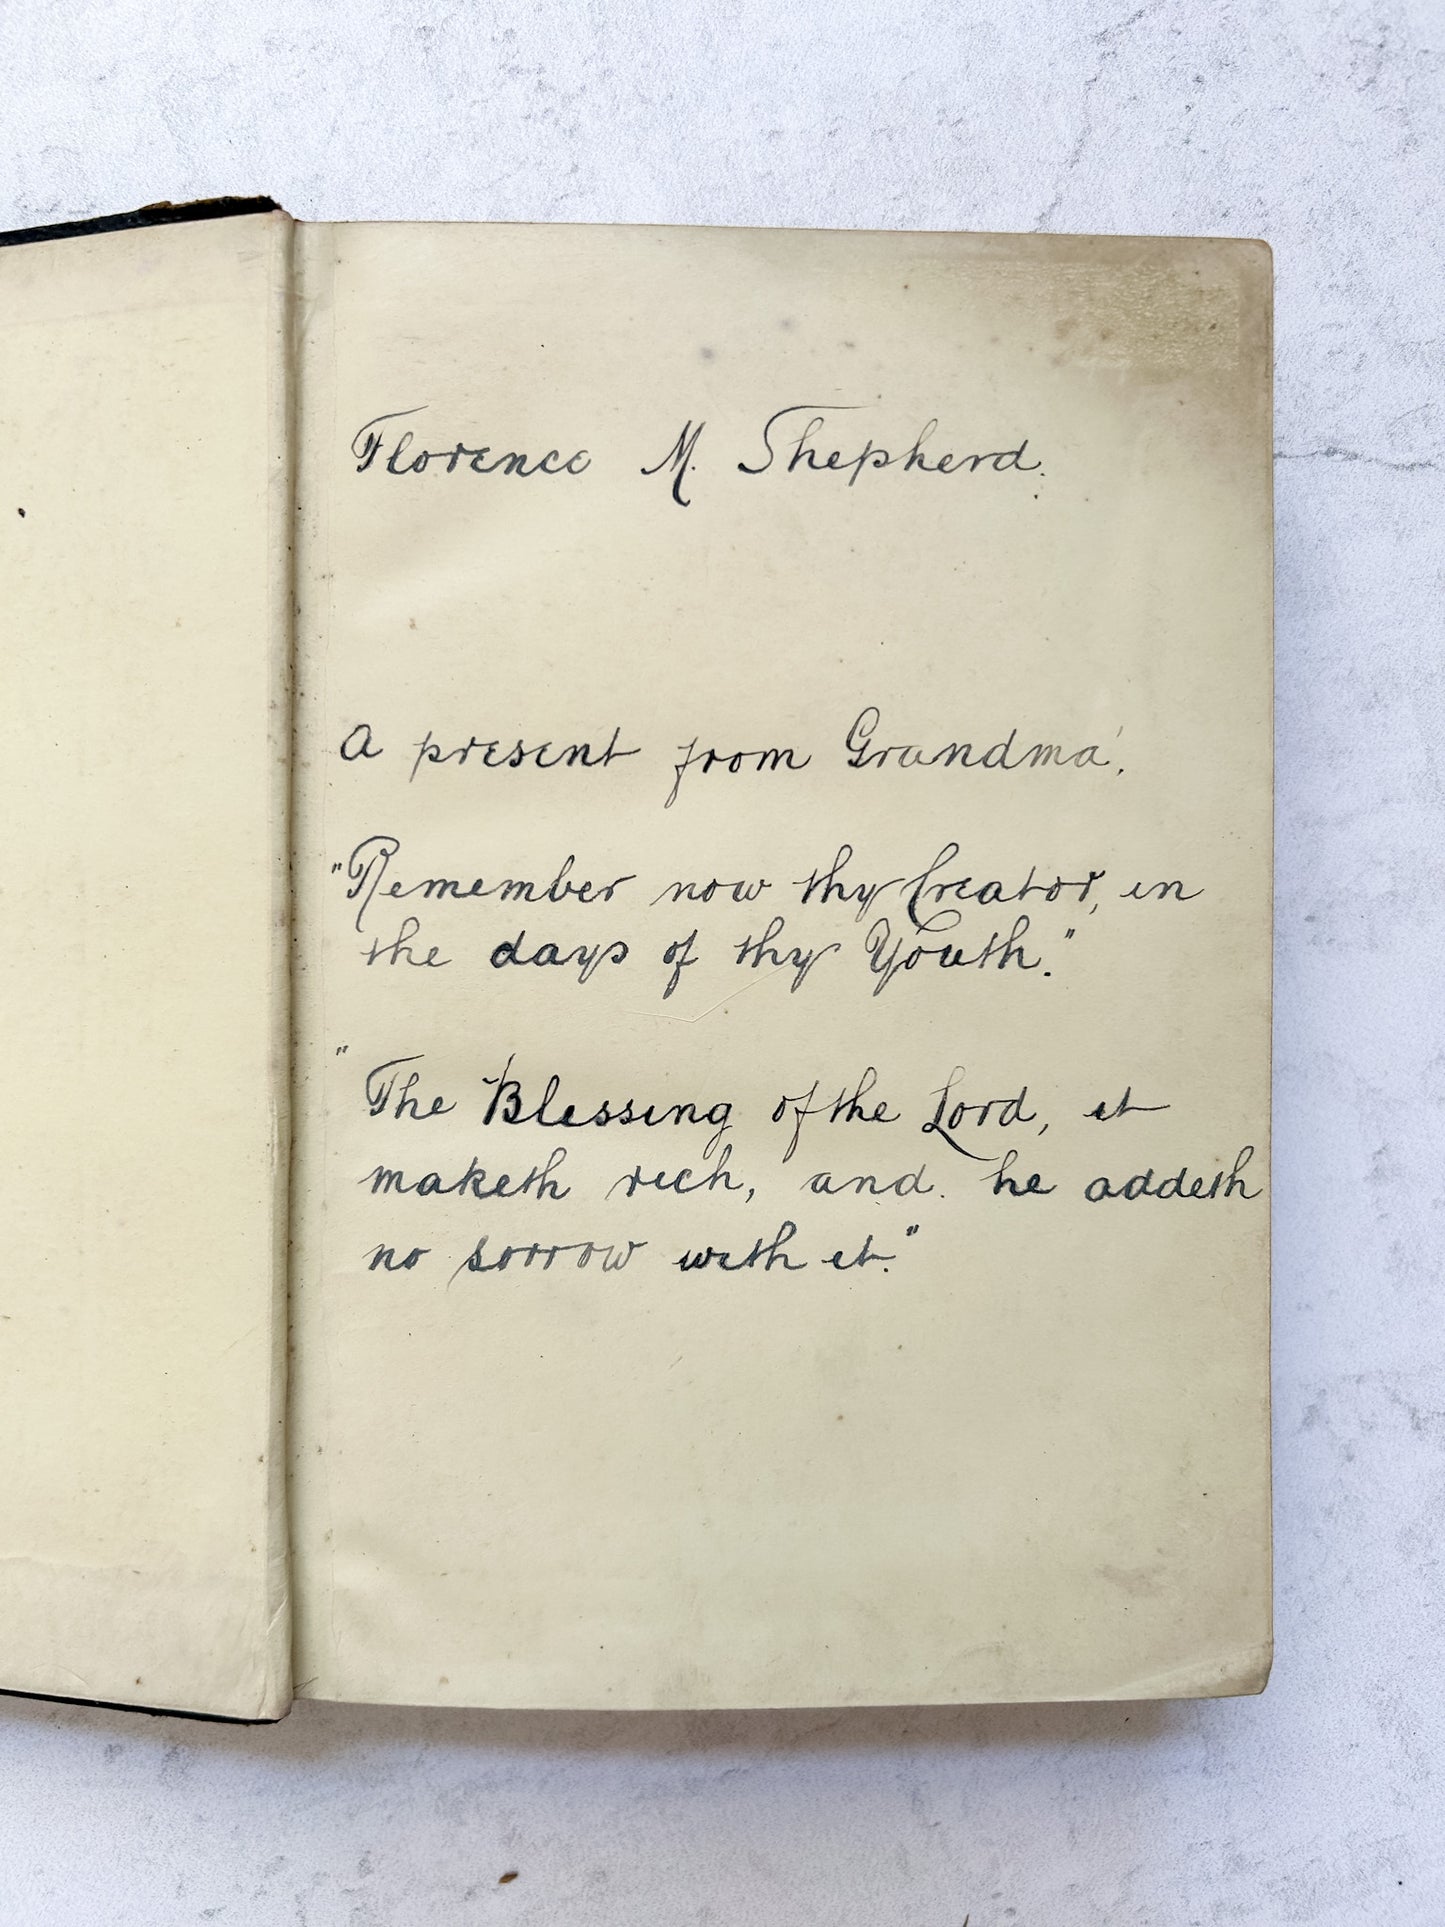 Florence M. Shepherd.
A present from Grandma'.
"Remember now thy Creator, in
the days of thy Youth."
"The Blessing of the Lord, it
maketh rich, and he addeth
no sorrow with it."